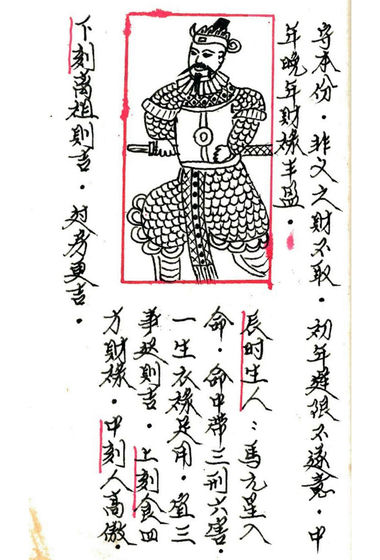 守本份．非义之财不取．初年限不遂意．中
年晚年财禄丰盈．
辰时生人：马元星入
命．命中带三刑六害．
一生衣禄足用．宜三
事则吉．上刻食四
方财禄．中刻人高傲．
下刻离祖则吉．更吉．